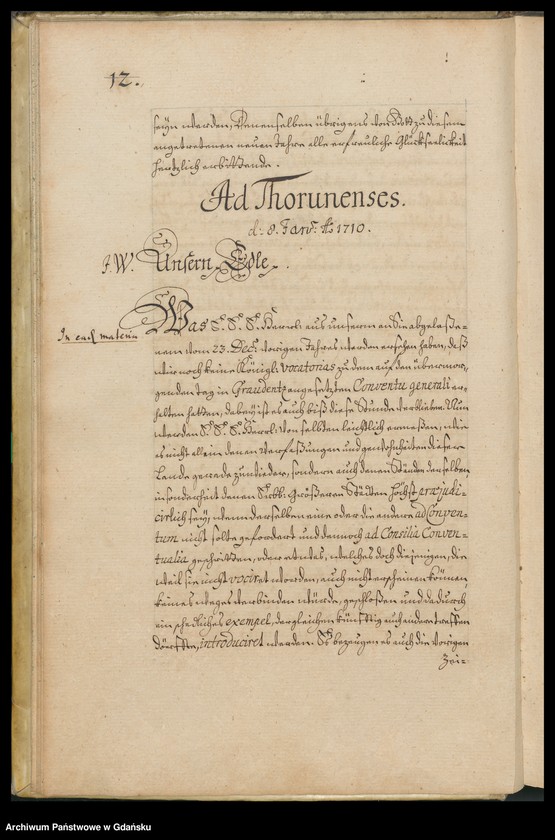 12.
seyn werden, Denenselben übrigens von Gott zu diesem
angetretenen neuen Jahre alle erfreuliche Glückseeligkeit
hertzlich anbittende.
Ad Thorunenses.
d. 8. Jan: Ao 1710.
P. W. Unsern Edle.
In eâd. materiâ
Was E. E. E. Herrl. aus unserm an Sie abgelaße-
nem vom 23. Dec: vorigen Jahres werden ersehen haben, daß
wir noch keine Königl. vocatorias zu dem auf den übermor-
genden tag in Graudentz angesetzten Conventu generali er-
halten hatten, dabey ist es auch biß diese Stunde verblieben. Nun
werden E. E. E. Herrl. von selbsten leichtlich ermeßen, wie
es nicht allein denen Verfaßungen und gewohnheiten dieser
Lande gerade zuwieder, sondern auch denen Ständen derselben,
insonderheit denen Größeren Städten höchst præjudi-
cirlich sey, wenn derselben eine oder die andere ad Conven-
tum nicht solte gefordert und dennoch ad Consilia Conven-
tualia geschritten, oder etwas, welches doch diejenigen, die
weil sie nicht vociret worden, auch nicht erscheinen können
keines weges verbinden würde, geschloßen und dadurch
ein schedliches exempel, dergleichen künfftig auch andere treffen
dörffte, introduciret werden. Es bezeugen es auch die vorigen
Zei-
Archiwum Państwowe w Gdańsku